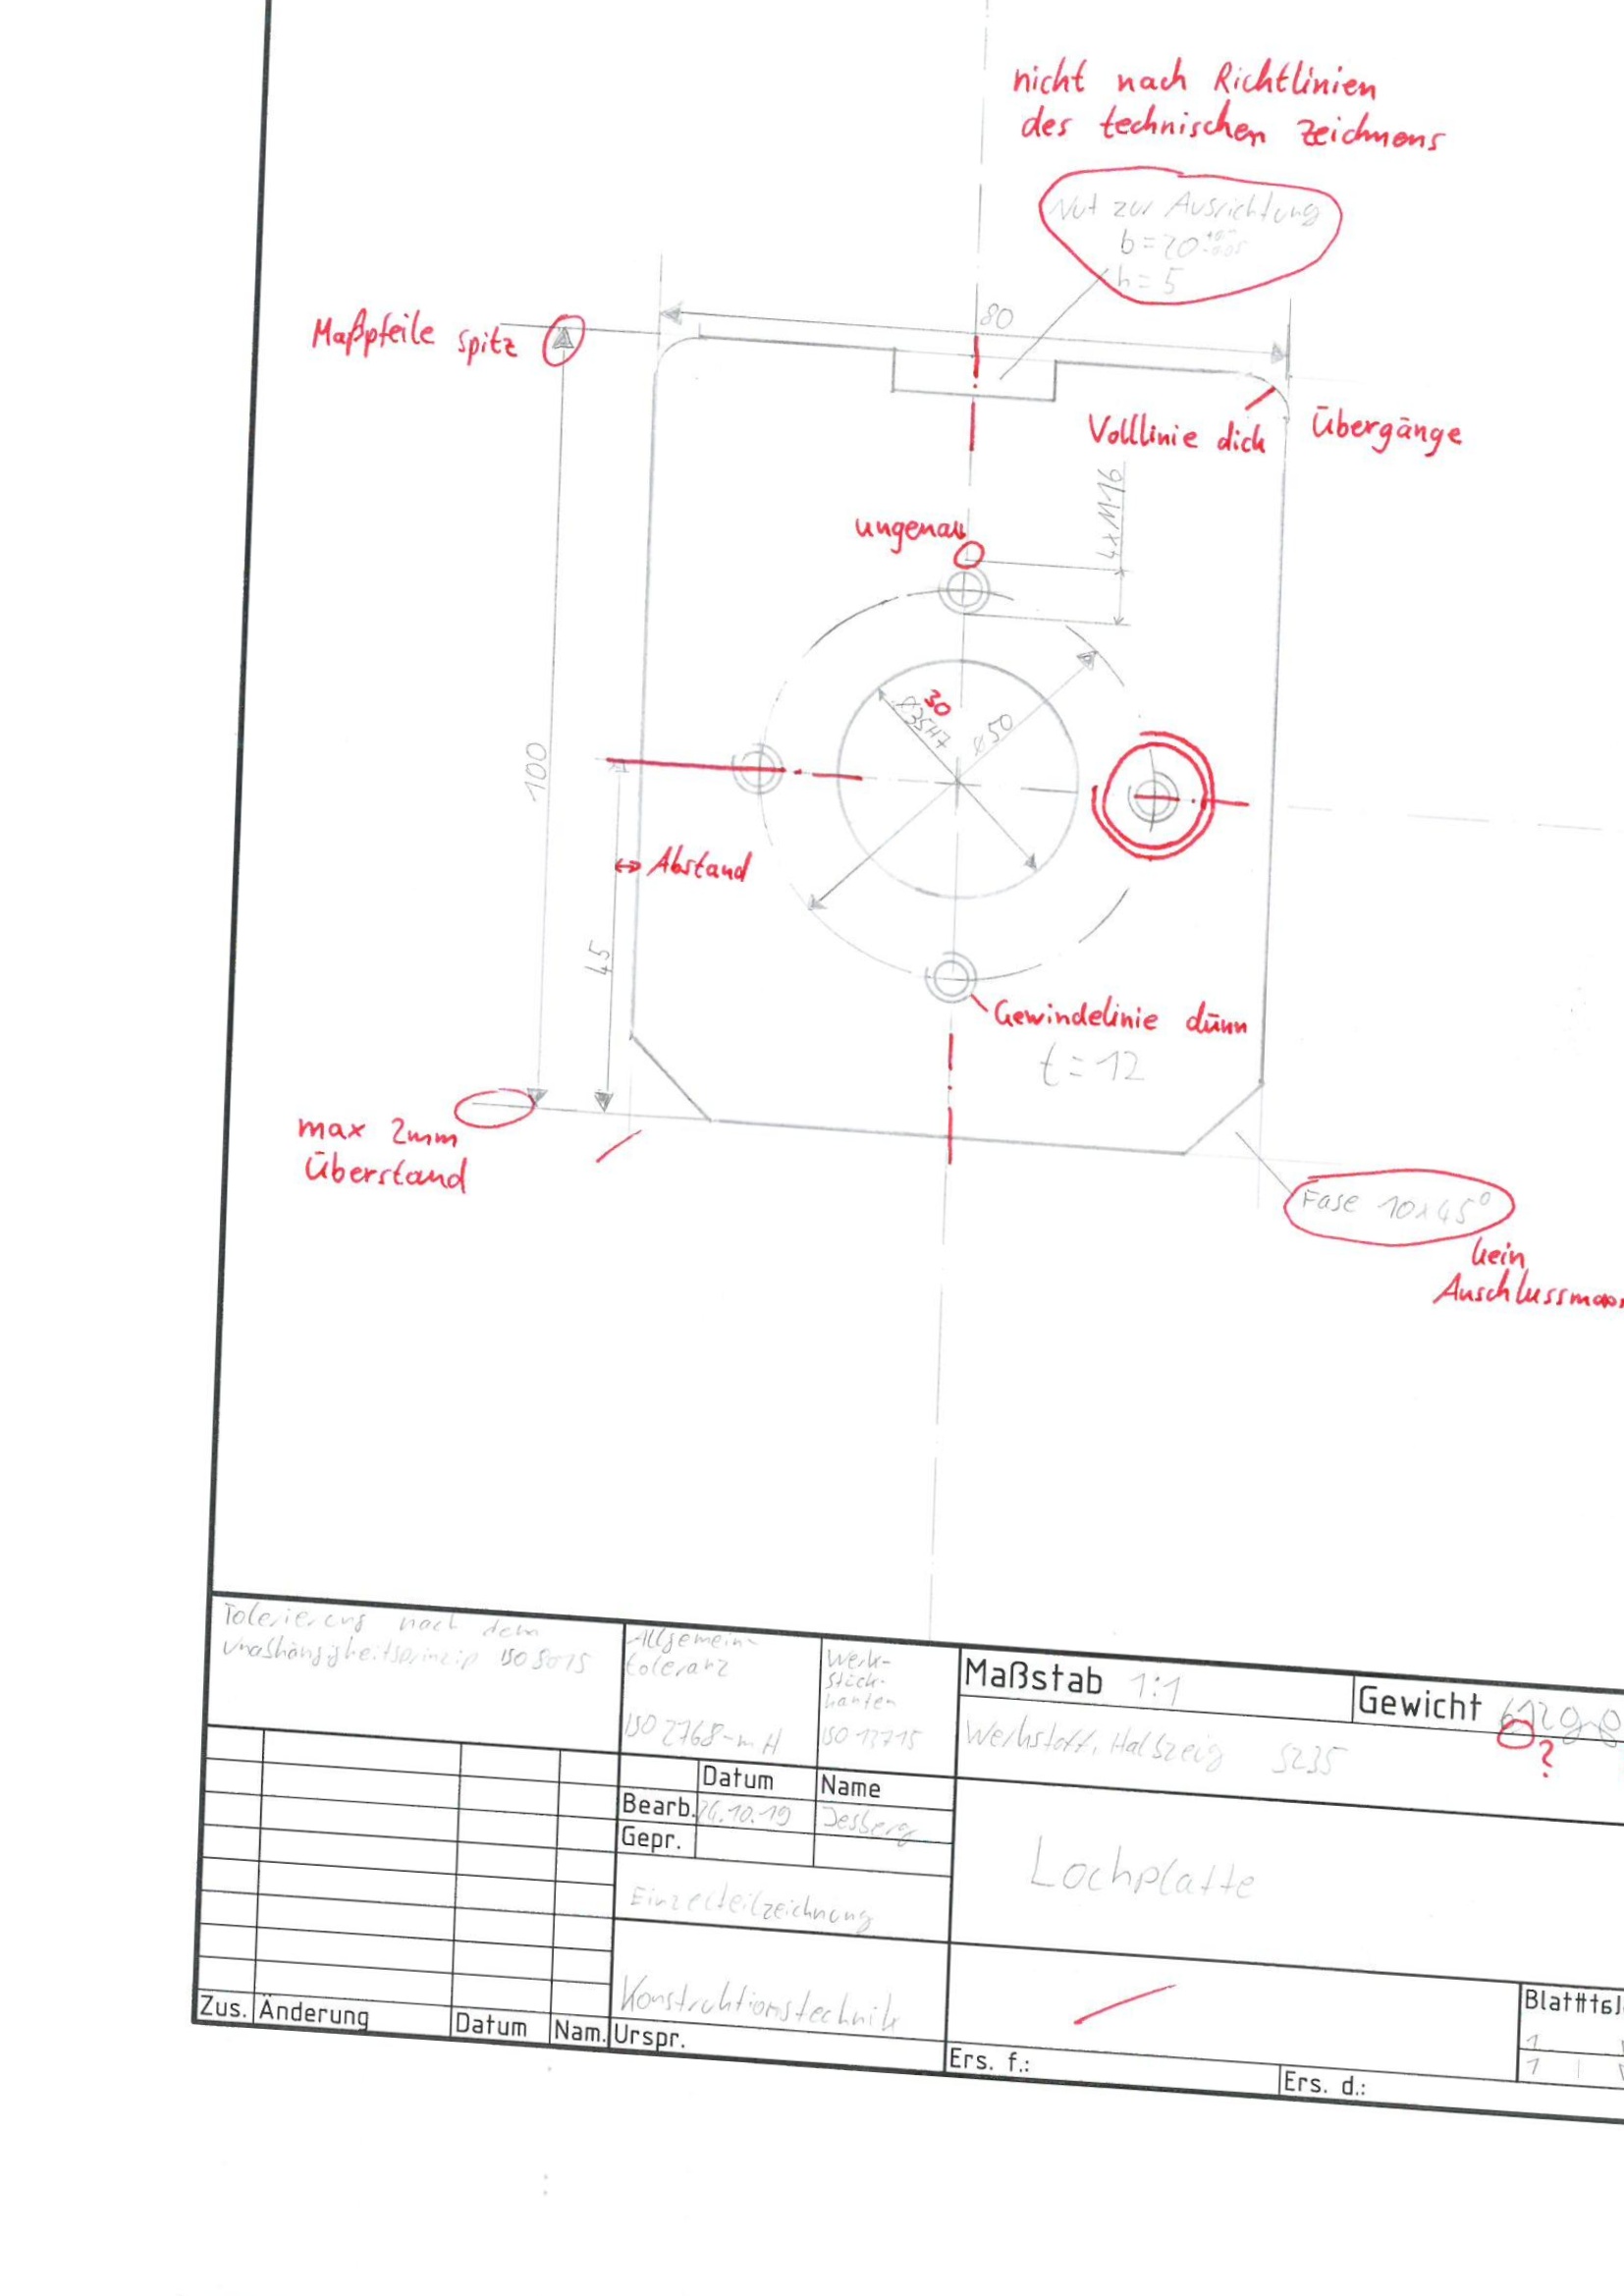 nicht nach Richtlinien
des technischen Zeichnens
Nut zur Ausrichtung
b=20
h=5
80
Maßpfeile spitz
Volllinie dick
Übergänge
4xM16
ungenau
30
ø35H7
ø50
100
Abstand
45
Gewindelinie dünn
t=12
max 2mm
Überstand
Fase 10x45°
kein
Anschlussmass
Tolerierung nach dem
Unabhängigkeitsprinzip ISO 8015
Allgemein-
toleranz
ISO 2768-mH
Werk-
stück-
kanten
ISO 13715
Maßstab 1:1
Gewicht
?
Werkstoff, Halbzeug S235
Datum
Name
Bearb.
26.10.19
Jesberg
Gepr.
Lochplatte
Einzelteilzeichnung
Konstruktionstechnik
Zus.
Änderung
Datum
Nam.
Urspr.
Ers. f.:
Ers. d.:
1
1